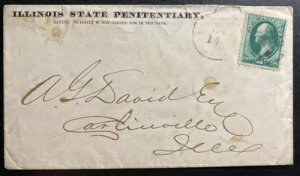 ILLINOIS STATE PENITENTIARY,
RETURN TO JOLIET IF NOT CALLED FOR IN TEN DAYS.
A. G. David Esq
Carlinville
Ills